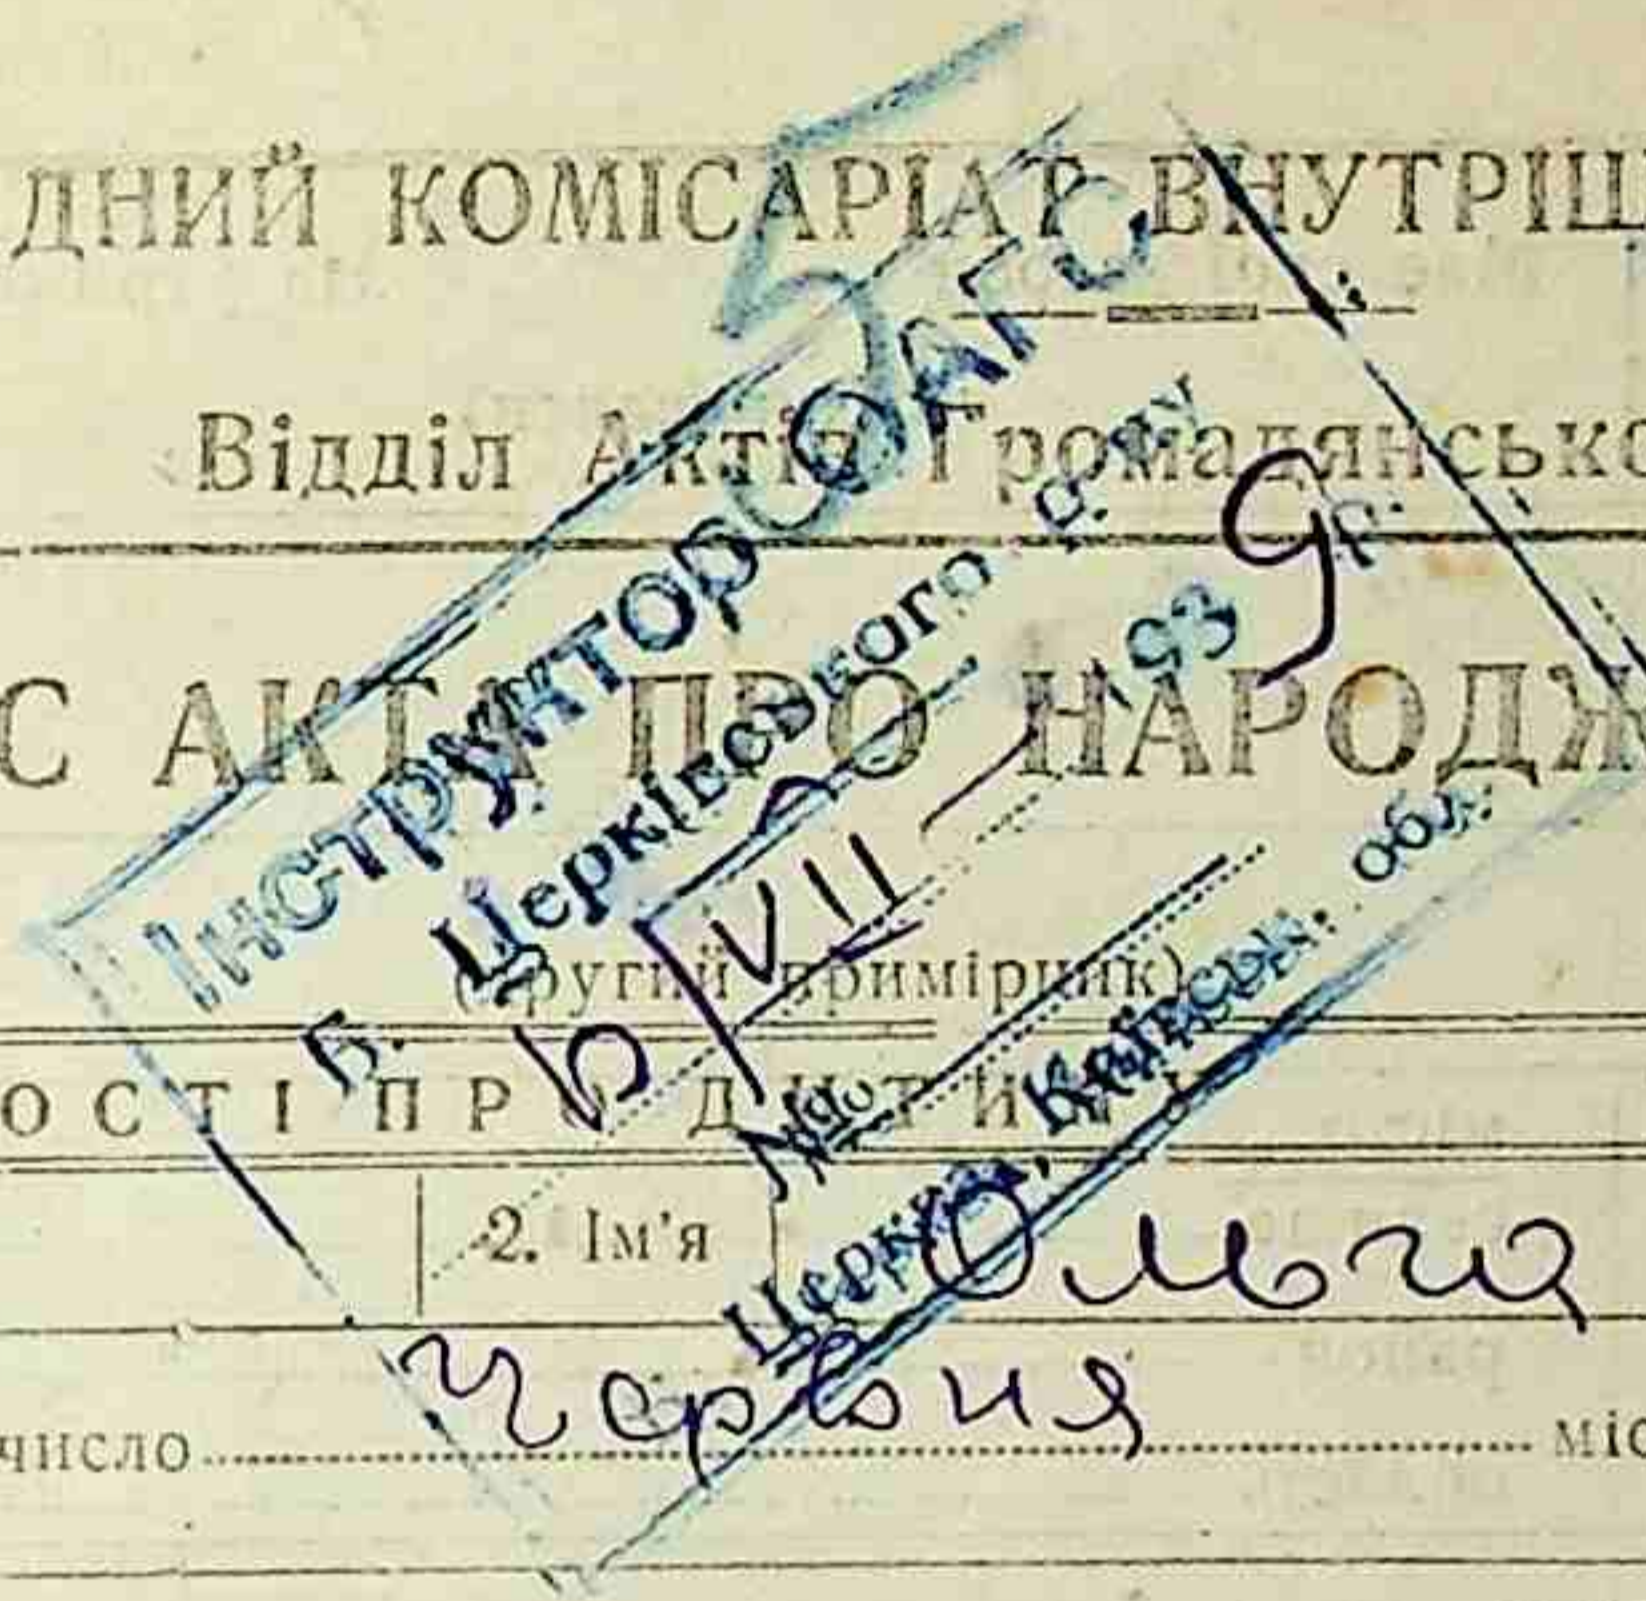 ДНИЙ КОМІСАРІАТ ВНУТРІШ
Відділ Актів Громадянсько
С АКТА ПРО НАРОДЖ
(другий примірник)
ОСТІ ПРО ДИТИНУ
2. Ім'я Ольга
число Червня міс
Інструктор ОАГС
Б. Церківського р-ну
VII 1939 р.
№
Б. Церква, Київськ. обл.